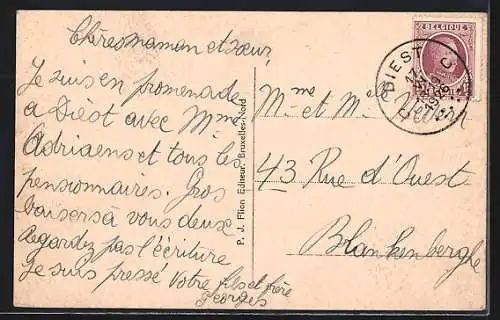 Chères maman et sœur
Je suis en promenade
a Diest avec Mme
Adriaens et tous les
pensionnaires. Gros
baisers à vous deux
Regardez pas l'écriture
Je suis pressé Votre fils et frère
Georges
P. J. Flion Editeur, Bruxelles-Nord
BELGIQUE
DIEST
C
Mme et Melle
43 Rue d'Ouest
Blankenberghe